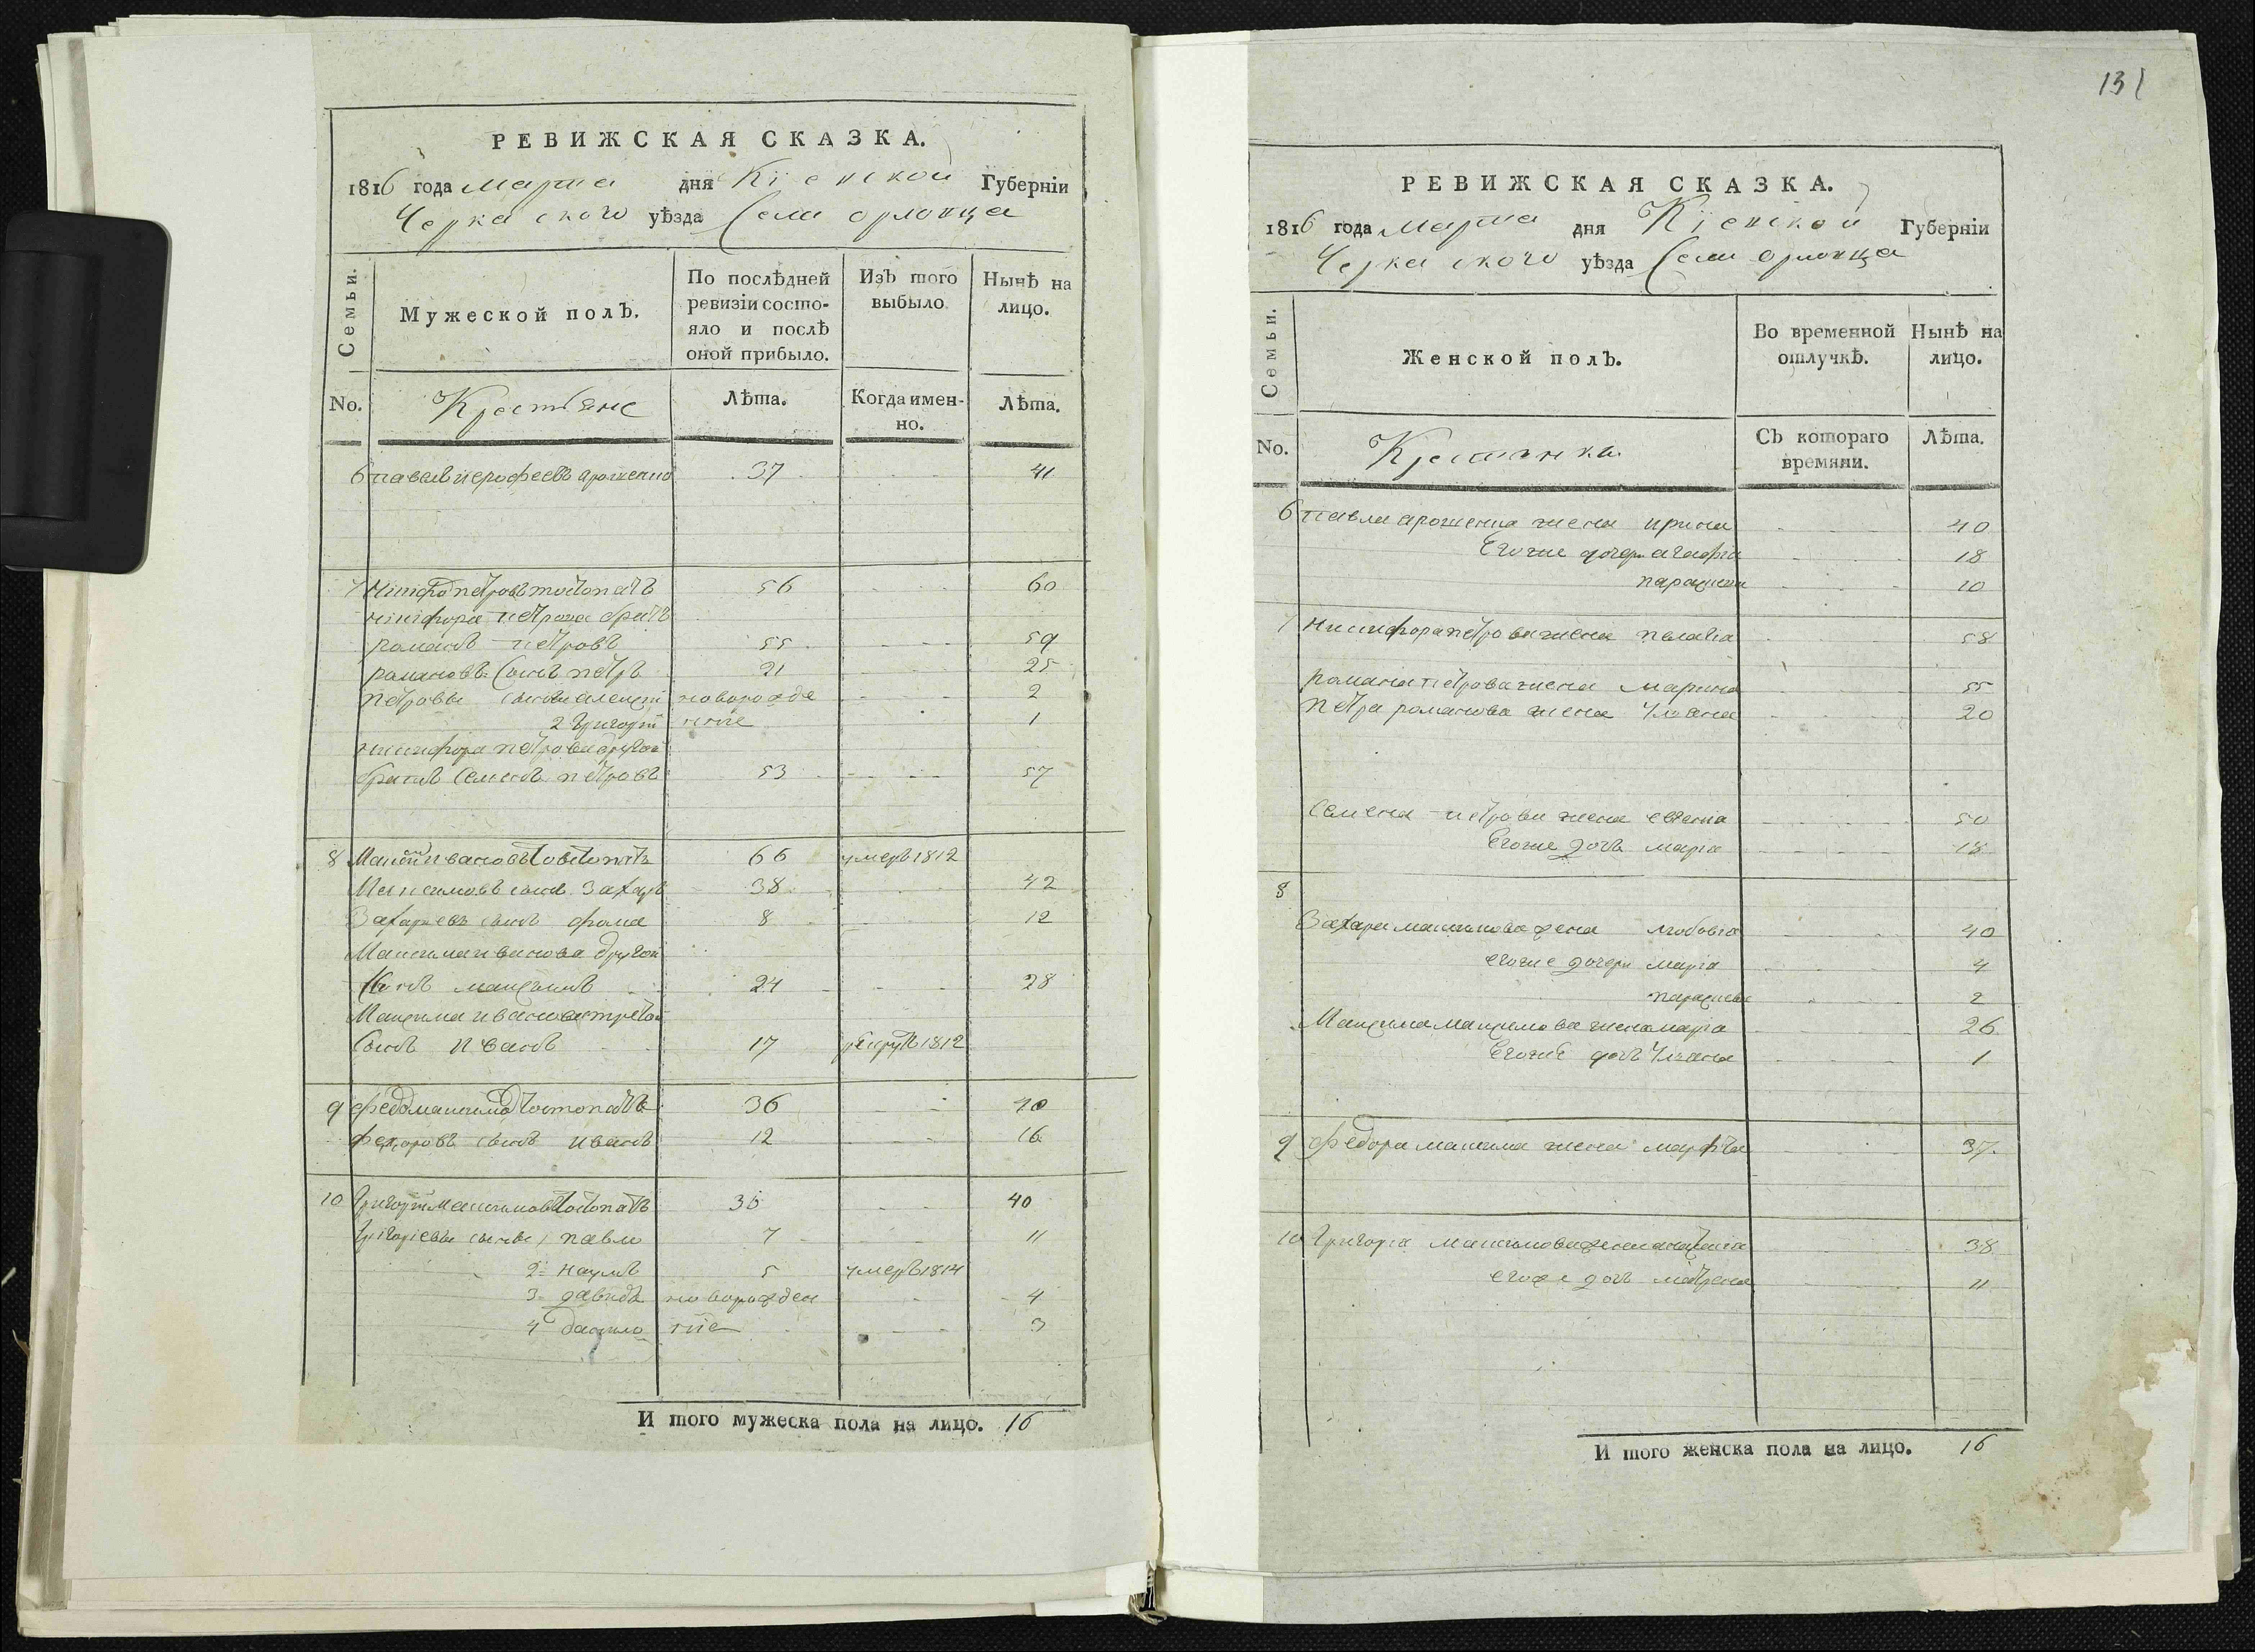 РЕВИЖСКАЯ СКАЗКА.
1816 года марта дня Кіевской Губерніи
Черкаского уѣзда Села орловца
Семьи.
Мужеской полъ.
По послѣдней ревизіи состо-
яло и послѣ
оной прибыло.
Изъ того
выбыло.
Нынѣ на
лицо.
No.
Крестьяне
Лѣта.
Когда имен-
но.
Лѣта.
6 павелъ иерофеевъ 37 41
7 56 60
никифора петрова братъ
романъ петровъ 55 59
романовъ сынъ петръ 21 25
петровы сыновя алексѣй новорожде 2
2 григорій нніе 1
никифора петрова другой
братъ Семенъ петровъ 53 57
8 ивановъ 66 умеръ 1812
Максимовъ сынъ Захаръ 38 42
Захариевъ сынъ фома 8 12
Максима иванова другой
сынъ максимъ 24 28
Максима иванова третой
Сынъ иванъ 17 рекрутъ 1812
9 36 40
федоровъ сынъ иванъ 12 16
10 григорій максимовъ 36 40
григориевы сынове 1 павло 7 11
2 наумъ 5 умеръ 1814
3 давидъ новорожден 4
4 нніе 3
И того мужеска пола на лицо. 16
131
РЕВИЖСКАЯ СКАЗКА.
1816 года марта дня Кіевской Губерніи
Черкаского уѣзда Села орловца
Семьи.
Женской полъ.
Во временной
отлучкѣ.
Нынѣ на
лицо.
No.
Съ котораго
времяни.
Лѣта.
6 павла жена ирина 40
Егоже дочери агафіа 18
параскева 10
7 никифора петрова жена пелагіа 58
романа петрова жена марина 55
петра романова жена улиана 20
Семена петрова жена евгениа 50
Егоже дочь мариа 18
8
Захара максимова жена любовіа 40
егоже дочери мариа 4
параскева 2
Максима максимова жена мариа 26
Егоже дочь улиана 1
9 федора максима жена марфа 37
10 григориа максимова жена 38
егоже дочь мотрона 11
И того женска пола на лицо. 16